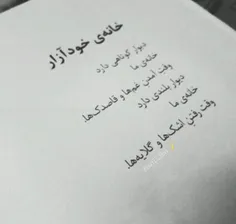 خانه‌ی خودآزار
دیوار کوتاهی دارد
خانه‌ی ما
وقت آمدن غم‌ها و قاصدک‌ها.
دیوار بلندی دارد
خانه‌ی ما
وقت رفتن اشک‌ها و گلایه‌ها.